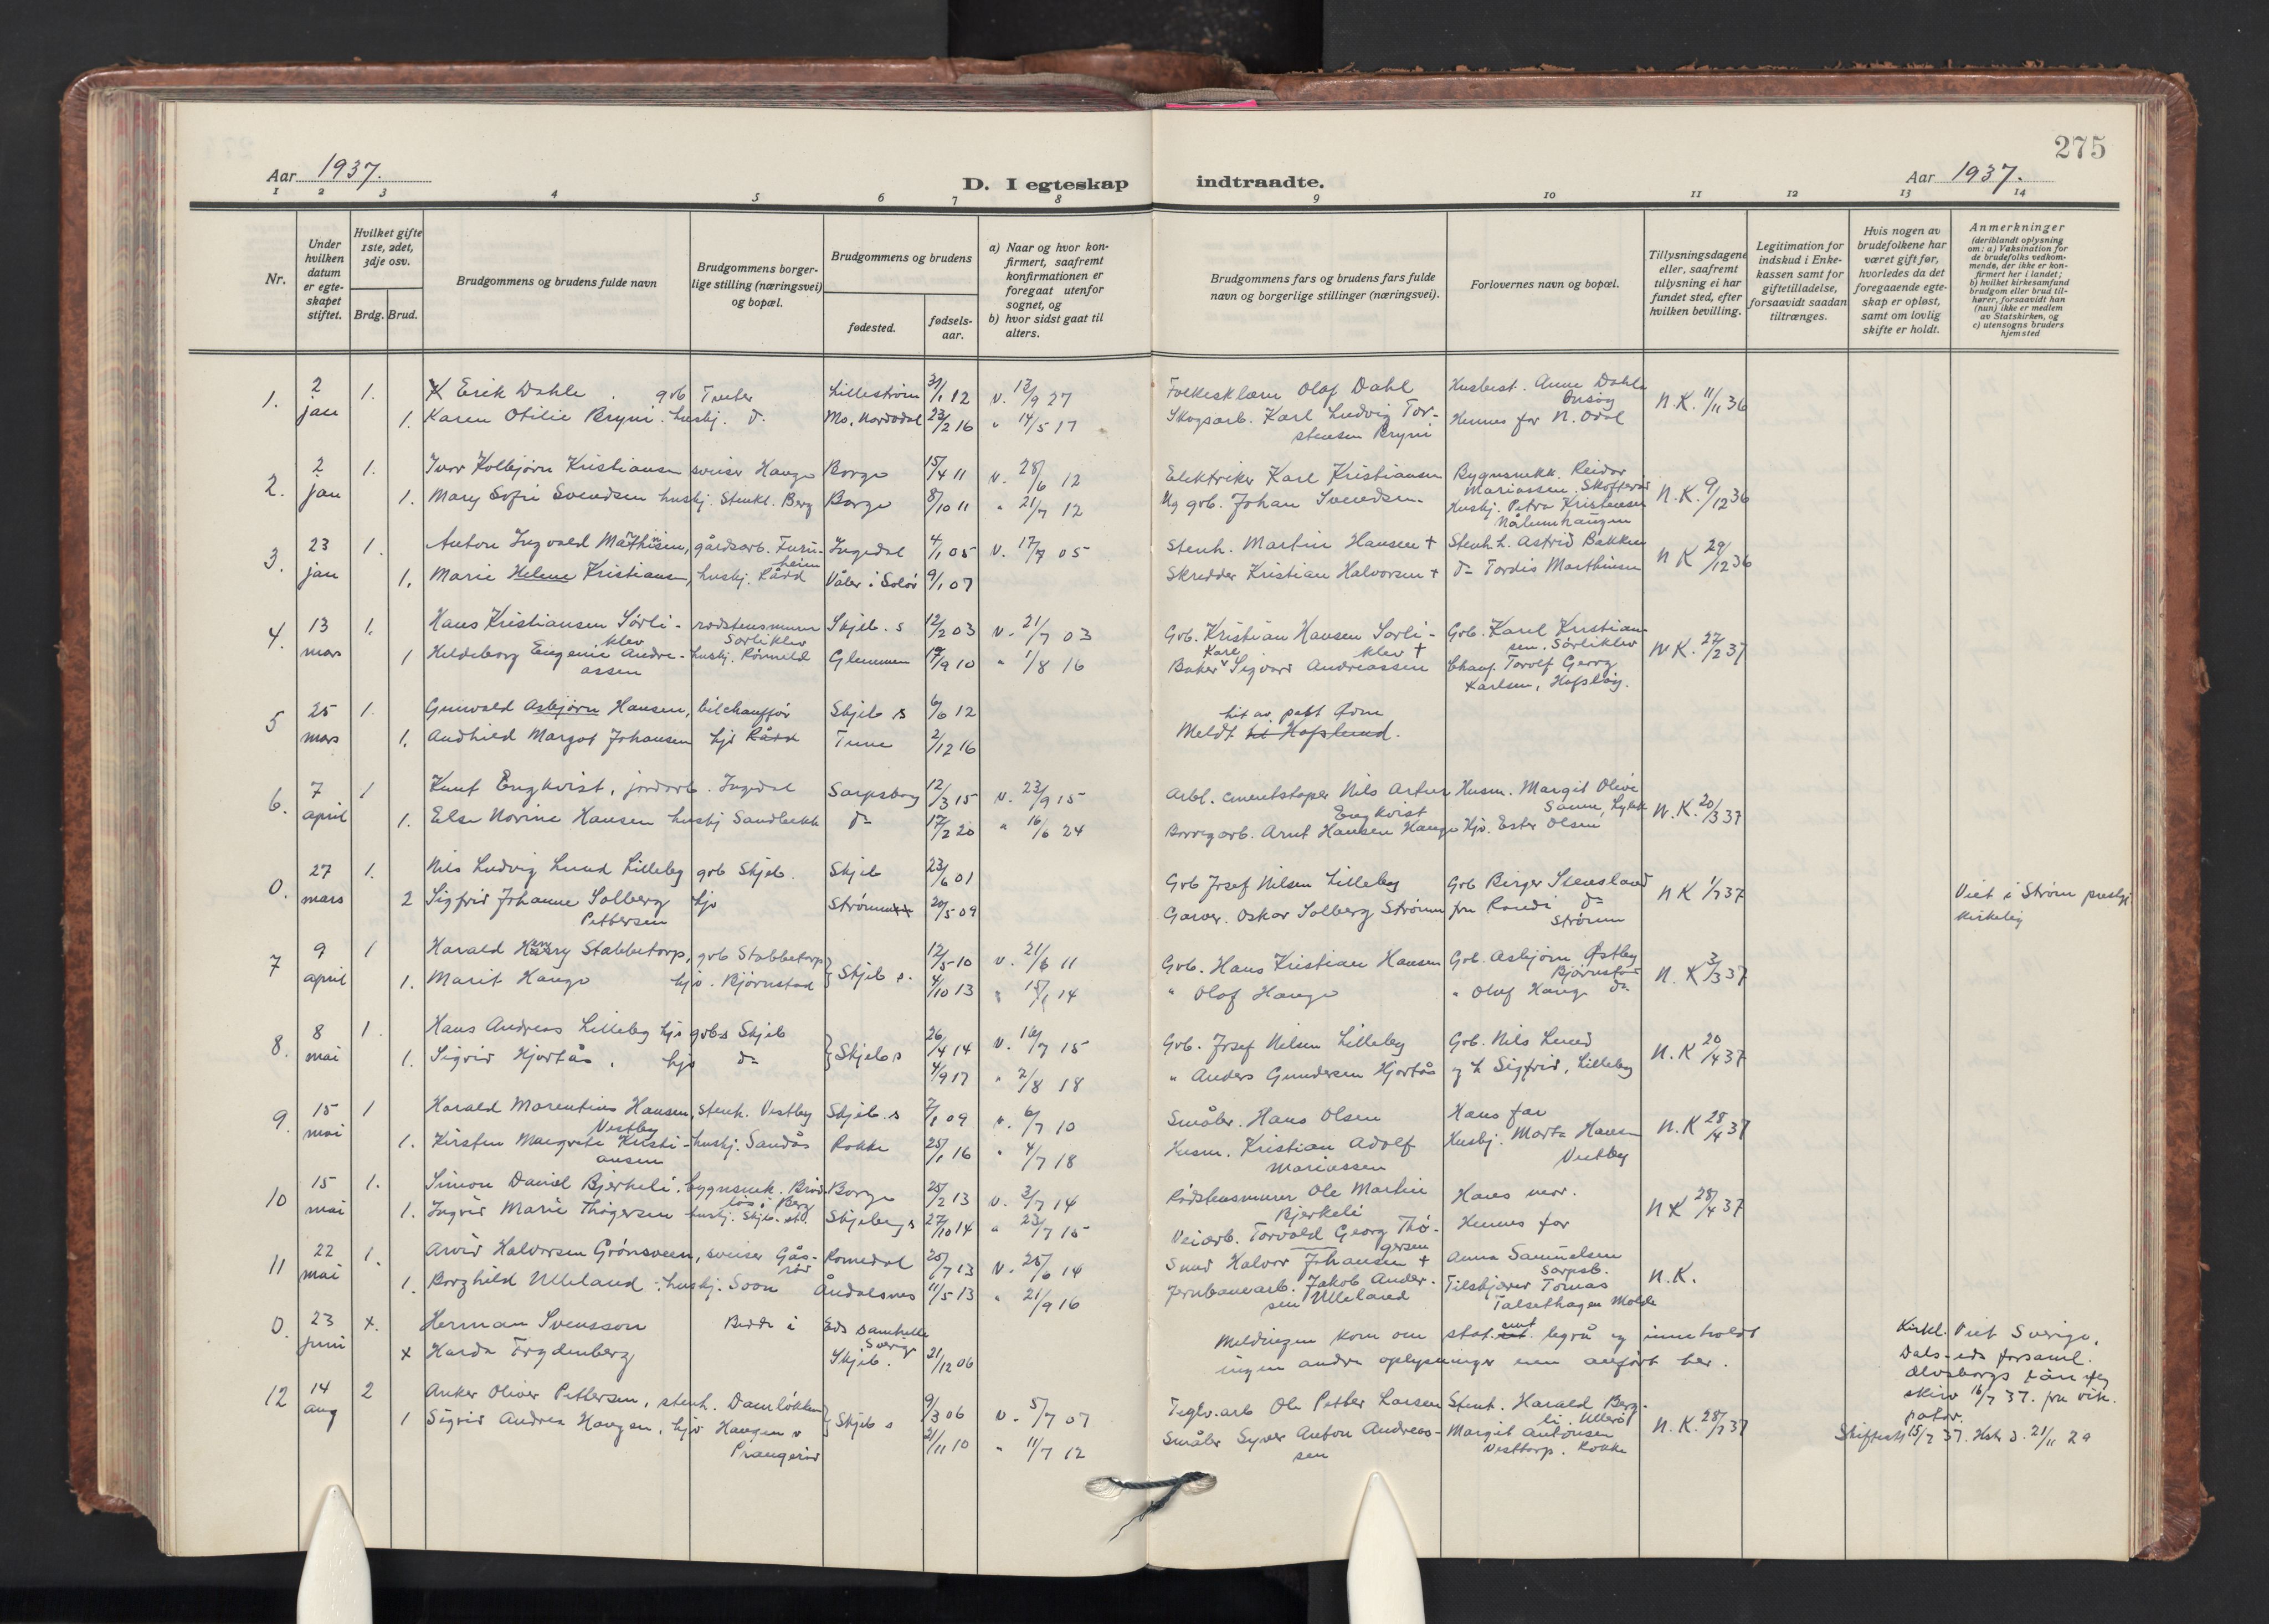 275
Aar 1937.
D. I egteskap indtraadte.
Aar 1937.
1 2 3 4 5 6 7 8 9 10 11 12 13 14
Nr.
Under hvilken datum er egteskapet stiftet.
Hvilket gifte 1ste, 2det, 3dje osv.
Brdg. Brud.
Brudgommens og brudens fulde navn
Brudgommens borgerlige stilling (næringsvei) og bopæl.
Brudgommens og brudens
fødested.
fødselsaar.
a) Naar og hvor konfirmert, saafremt konfirmationen er foregaat utenfor sognet, og
b) hvor sidst gaat til alters.
Brudgommens fars og brudens fars fulde navn og borgerlige stillinger (næringsvei).
Forlovernes navn og bopæl.
Tillysningsdagene eller, saafremt tillysning ei har fundet sted, efter hvilken bevilling.
Legitimation for indskud i Enkekassen samt for giftetilladelse, forsaavidt saadan tiltrænges.
Hvis nogen av brudefolkene har været gift før, hvorledes da det foregaaende egteskap er opløst, samt om lovlig skifte er holdt.
Anmerkninger (deriblandt oplysning om: a) Vaksination for de brudefolks vedkommende, der ikke er konfirmert her i landet; b) hvilket kirkesamfund brudgom eller brud tilhører, forsaavidt han (hun) ikke er medlem av Statskirken, og c) utensogns bruders hjemsted
1. 2 jan 1. Erik Dahle gvb Tveter Lillestrøm 31/1 12 v. 13/9 27 Olaf Dahl Husbest. Anne Dahle N.K. 11/11 36
1. Karen Otilie Bryni. husbj. do. Mo, Nordodal 23/2 16 " 14/5 17 Skogsarb. Karl Ludvig Torstensen Bryni Hennes far N. Odal
2. 2 jan 1. Ivar Kolbjørn Kristiansen sveiser Hauge Borge 15/4 11 v. 28/6 12 Elektriker Karl Kristiansen Bygnsnekk. Reidar Mariassen N.K. 9/12 36
1. Mary Sofie Svendsen husbj. Stenkl. Berg Borge 8/10 11 " 21/7 12 gvb. Johan Svendsen. Husbj. Petra Kristensen
3. 23 jan 1. Anton Ingvald Mathisen, gårdsarb. Furuheim Ingedal 4/1 05 v. 17/7 05 Stenh. Martin Hansen + Stenh. h. Astrid Bakken N K 29/12 36
1. Marie Helene Kristiansen, husbj. Rådd Våler i Solør 9/1 07 Skredder Kristian Halvorsen + do Tordis Marthinsen
4. 13 mars 1. Hans Kristiansen Sørliklev rødstensmurer Sørliklev Skjeb. s 12/2 03 v. 21/7 03 Gvb. Kristian Hansen Sørliklev + Gvb. Karel Kristiansen. Sørliklev N K. 27/2 37
1 Hildeborg Eugenie Andreassen husbj. Rønneld Glemmen 19/9 10 " 1/8 16 Baker Kare Sigvard Andreassen Chauf. Torolf Georg Karlsen, Hafslag.
5 25 mars 1. Gunvald Asbjørn Hansen, bilchauffør Skjeb s 6/6 12
1. Audhild Margot Johansen hjs Rådd Tune 2/12 16 Meldt til Hafslund.
6. 7 april 1 Knut Engkvist, jordarb. Ingedal Sarpsborg 12/3 15 v. 23/9 15 Arbf. cementstøper Nils Artur Engkvist Husm. Margit Olive Sanne N.K. 20/3 37
1. Else Norine Hansen husbj Sandbekk do 17/2 20 " 16/6 24 Borregarb. Arnt Hansen Haugen Hjv. Ester Olsen
0. 27 mars 1. Nils Ludvig Lund Lilleby gvb Skjeb. Skjeb 23/6 01 Gvb Josef Nilsen Lilleby Gvb Birger Stensland N K 1/7 37 Viet i Strøm prestgj kirkelig
2 Sigfrid Johanne Solberg Pettersen hjv Strømm 20/5 09 Garver. Oskar Solberg Strømm fru Randi do Strømm
7 9 april 1 Harald Harry Stabbetorp, gvb Stabbetorp Skjeb s. 12/5 10 v. 21/6 11 Gvb. Hans Kristian Hansen Gvb. Asbjørn Østby Bjørnstad N. K 3/3 37
1. Marit Hauge hjv. Bjørnstad 4/10 13 " 15/6 14 " Olaf Hauge " Olaf Hauge do
8. 8 mai 1. Hans Andreas Lilleby hjs gvbs Skjeb Skjeb s 26/4 14 v. 16/7 15 Gvb. Josef Nilsen Lilleby Gvb. Nils Lund N.K 20/4 37
1. Sigrid Hjortås, hjs do 4/9 17 " 2/8 18 " Anders Gundersen Hjortås og h Sigfrid, Lilleby
9. 15 mai 1 Harald Marentius Hansen Vestby, stenh. Vestby Skjeb. s 7/1 09 v. 6/7 10 Småbr. Hans Olsen Hans far N.K 28/4 37
1. Kirsten Margrete Kristiansen husbj. Sandås Rokke 25/1 16 " 4/7 18 Husm. Kristian Adolf Mariassen Husbj. Marta Hansen Vestby
10 15 mai 1. Simon Daniel Bjerkeli, bygnsnek. Berg Borge 25/2 13 v. 2/7 14 Rødstensmurer Ole Martin Bjerkeli Hans mor. N K 28/4 37
1. Ingrid Marie Thøgersen husbj. Skjeb. st. Skjeberg s 27/10 14 " 23/7 15 Veiarb. Torvald Georg Thøgersen Hennes far
11 22 mai 1. Arvid Halvorsen Grønsveen, sveiser Gåsrød Romedal 25/7 13 v. 25/6 14 Smed Halvor Johansen + Anna Samuelsen Sarpsb. N.K.
1. Borghild Ulleland, husbj. Soon Åndalsnes 11/5 13 " 21/9 16 Jernbanearb. Jakob Andersen Ulleland Tilskjærer Tomas Talsethagen Molde
0. 23 juni x. Herman Svensson Bedde i Eds samhelle Sverige Meldingen kom om stat. cent. byrå og inneholdt Kirkl. Viet Sverige, Dals-eds forsaml.
x Harda Frydenberg Skjeb. 21/12 06 ingen andre oplysninger enn anført her. Elvsborgs län skriv 16/7 37.
12 14 aug 2 Anker Oliver Pettersen, stenh. Damløkken Skjeb s 9/3 06 v. 5/7 07 Teglv.arb Ole Petter Larsen Stenh. Harald Bergli. Ullerøl N.K. 28/7 37 Skifteatt 15/7 37. 21/11 29
1 Sigrid Andrea Haugen, hjv Haugen v Prangerød 21/11 10 " 11/7 12 Småbr Syver Anton Andreassen Margit Antonsen Vesttorp. Rokke